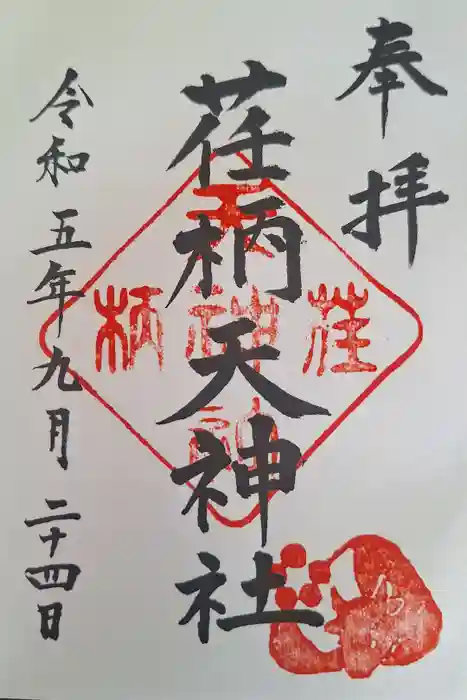 奉拝
荏柄天神社
荏柄天神社
令和五年九月二十四日